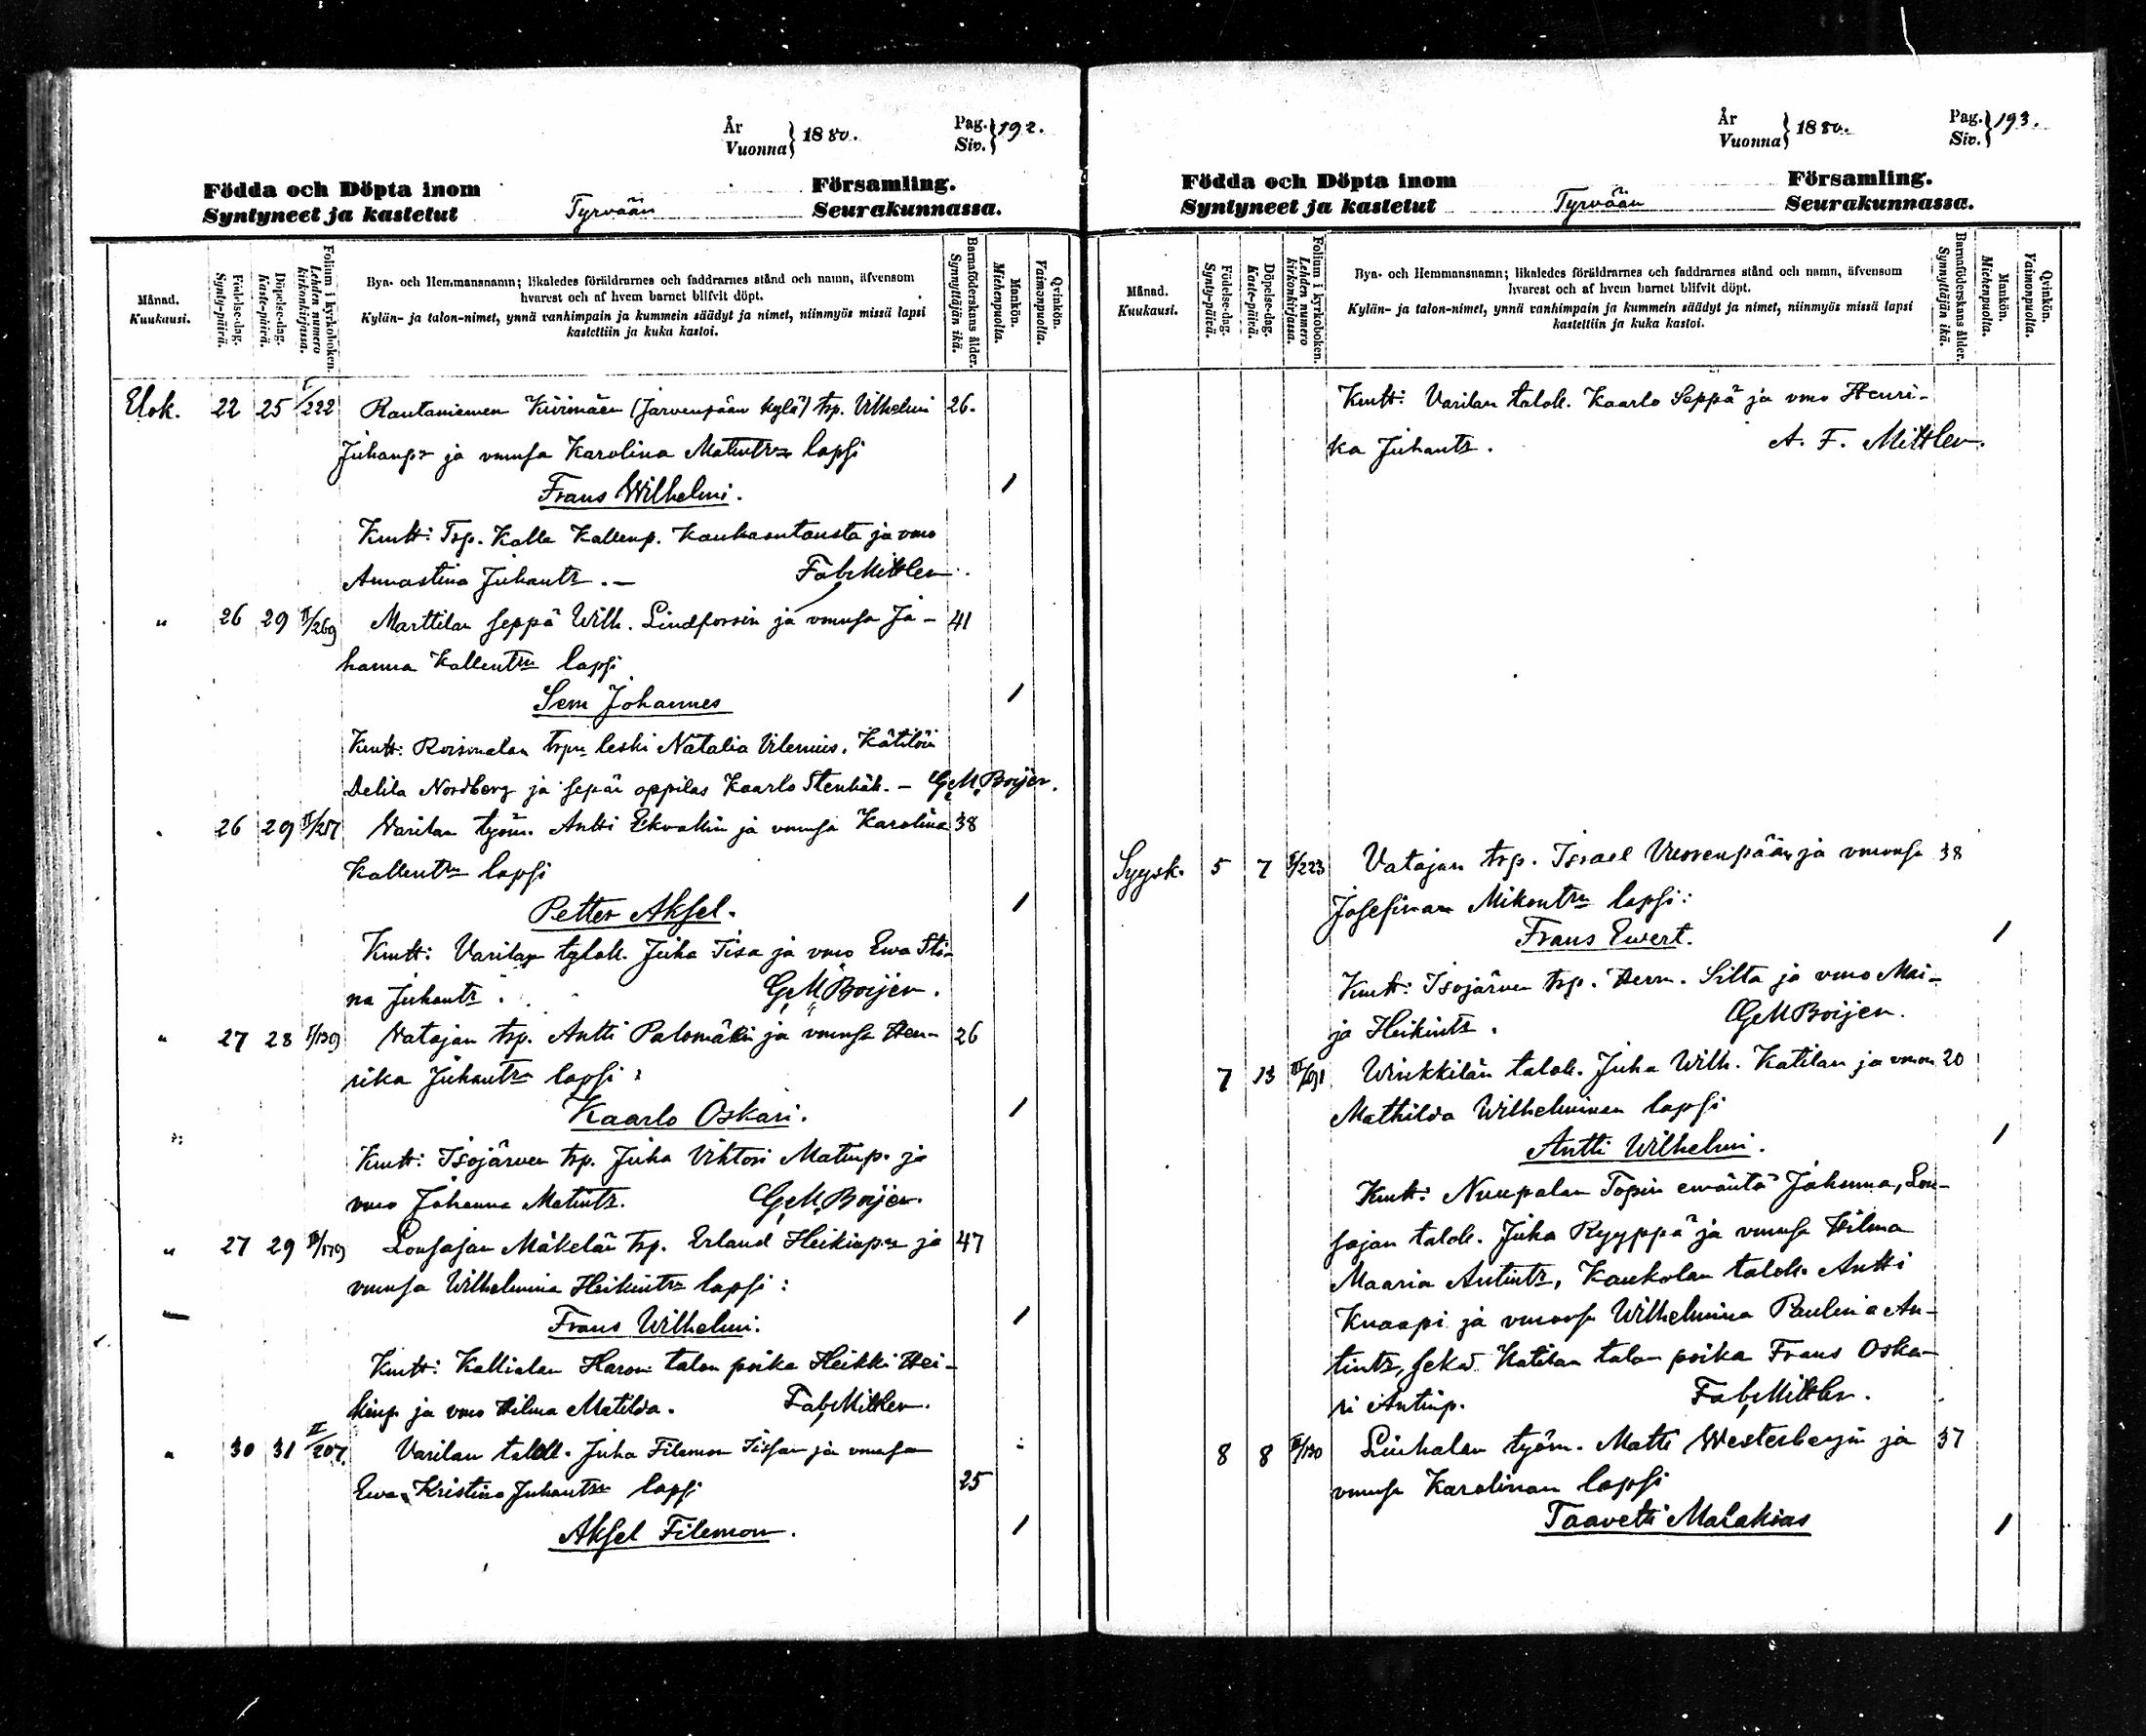 År
Vuonna } 1880.
Pag.
Siv. } 192.
Födda och Döpta inom Församling.
Syntyneet ja kastetut Tyrvään Seurakunnassa.
Månad.
Kuukausi.
Födelse-dag.
Synty-päivä.
Döpelse-dag.
Kaste-päivä.
Folium i kyrkoboken.
Lehden numero kirkonkirjassa.
Bya- och Hemmansnamn; likaledes föräldrarnes och faddrarnes stånd och namn, äfvensom
hvarest och af hvem barnet blifvit döpt.
Kylän- ja talon-nimet, ynnä vanhimpain ja kummein säädyt ja nimet, niinmyös missä lapsi
kastettiin ja kuka kastoi.
Barnaföderskans ålder.
Synnyttäjän ikä.
Mankön.
Miehenpuolta.
Qvinkön.
Vaimonpuolta.
Elok. 22 25 I/222 Rautaniemen (Järvenpään kylä) trp. Vilhelmi 26.
Juhanp. ja vmnsa Karolina Matintr. lapsi
Frans Wilhelmi. 1
Kmtt: Trp. Kalle Kallenp. Kaukaantausta ja vmo
Annastina Juhantr. — Fab. Mittler.
" 26 29 II/269 Marttilan seppä Wilh. Lindforsin ja vmnsa Jo- 41
hanna Kallentrn lapsi
Sem Johannes 1
Kmtt: Roismalan trpn leski Natalia Vilenius, Kätilöin
Delila Nordberg ja sepän oppilas Kaarlo Stenbäk. — G. M. Boijer.
26 29 Varilan työm. Antti Ekvallin ja vmnsa Karolina 38
Kallentrn lapsi
Petter Aksel. 1
Kmtt: Varilan talok. Juha Iisa ja vmo Ewa Sti-
na Juhantr. G. M. Boijer.
" 27 28 I/139 Vatajan trp. Antti Palomäkin ja vmnsa Hen- 26
rika Juhantrn lapsi:
Kaarlo Oskari. 1
Kmtt: Isojärven trp. Juha Viktori Matinp. ja
vmo Johanna Matintr. G. M. Boijer.
" 27 29 Lousajan Mäkelän trp. Erland Heikinp. ja 47
vmnsa Wilhelmina Heikintrn lapsi:
Frans Wilhelmi. 1
Kmtt: Kallialan Haron talon poika Heikki Hei-
kinp. ja vmo Hilma Matilda. Fab. Mittler.
" 30 31 II/207. Varilan talok. Juha Filemon Iisan ja vmnsa
Ewa Kristina Juhantrn lapsi 25
Aksel Filemon. 1
År
Vuonna } 1880.
Pag.
Siv. } 193.
Födda och Döpta inom Församling.
Syntyneet ja kastetut Tyrvään Seurakunnassa.
Månad.
Kuukausi.
Födelse-dag.
Synty-päivä.
Döpelse-dag.
Kaste-päivä.
Folium i kyrkoboken.
Lehden numero kirkonkirjassa.
Bya- och Hemmansnamn; likaledes föräldrarnes och faddrarnes stånd och namn, äfvensom
hvarest och af hvem barnet blifvit döpt.
Kylän- ja talon-nimet, ynnä vanhimpain ja kummein säädyt ja nimet, niinmyös missä lapsi
kastettiin ja kuka kastoi.
Barnaföderskans ålder.
Synnyttäjän ikä.
Mankön.
Miehenpuolta.
Qvinkön.
Vaimonpuolta.
Kmtt: Varilan talok. Kaarlo Seppä ja vmo Henri-
ka Juhantr. A. F. Mittler.
Syysk. 5 7 I/223 Vatajan trp. Israel Vuorenpään ja vmonsa 38
Josefinan Mikontrn lapsi:
Frans Ewert. 1
Kmtt: Isojärven trp. Herm. Silta ja vmo Mai-
ja Heikintr. G M Boijer.
7 13 Winkkilän talok. Juha Wilh. Katilan ja vmon 20
Mathilda Wilhelminan lapsi
Antti Wilhelmi. 1
Kmtt: Nuupalan Topin emäntä Johanna, Lou-
sajan talok. Juha Ryyppä ja vmnsa Hilma
Maaria Antintr, Kaukolan talok. Antti
Knaapi ja vmonsa Wilhelmina Paulina An-
tintr, sekä Katilan talon poika Frans Oska-
ri Antinp. Fab. Mittler.
8 8 Liuhalan työm. Matti Westerbergin ja 37
vmnsa Karolinan lapsi
Taavetti Malakias 1